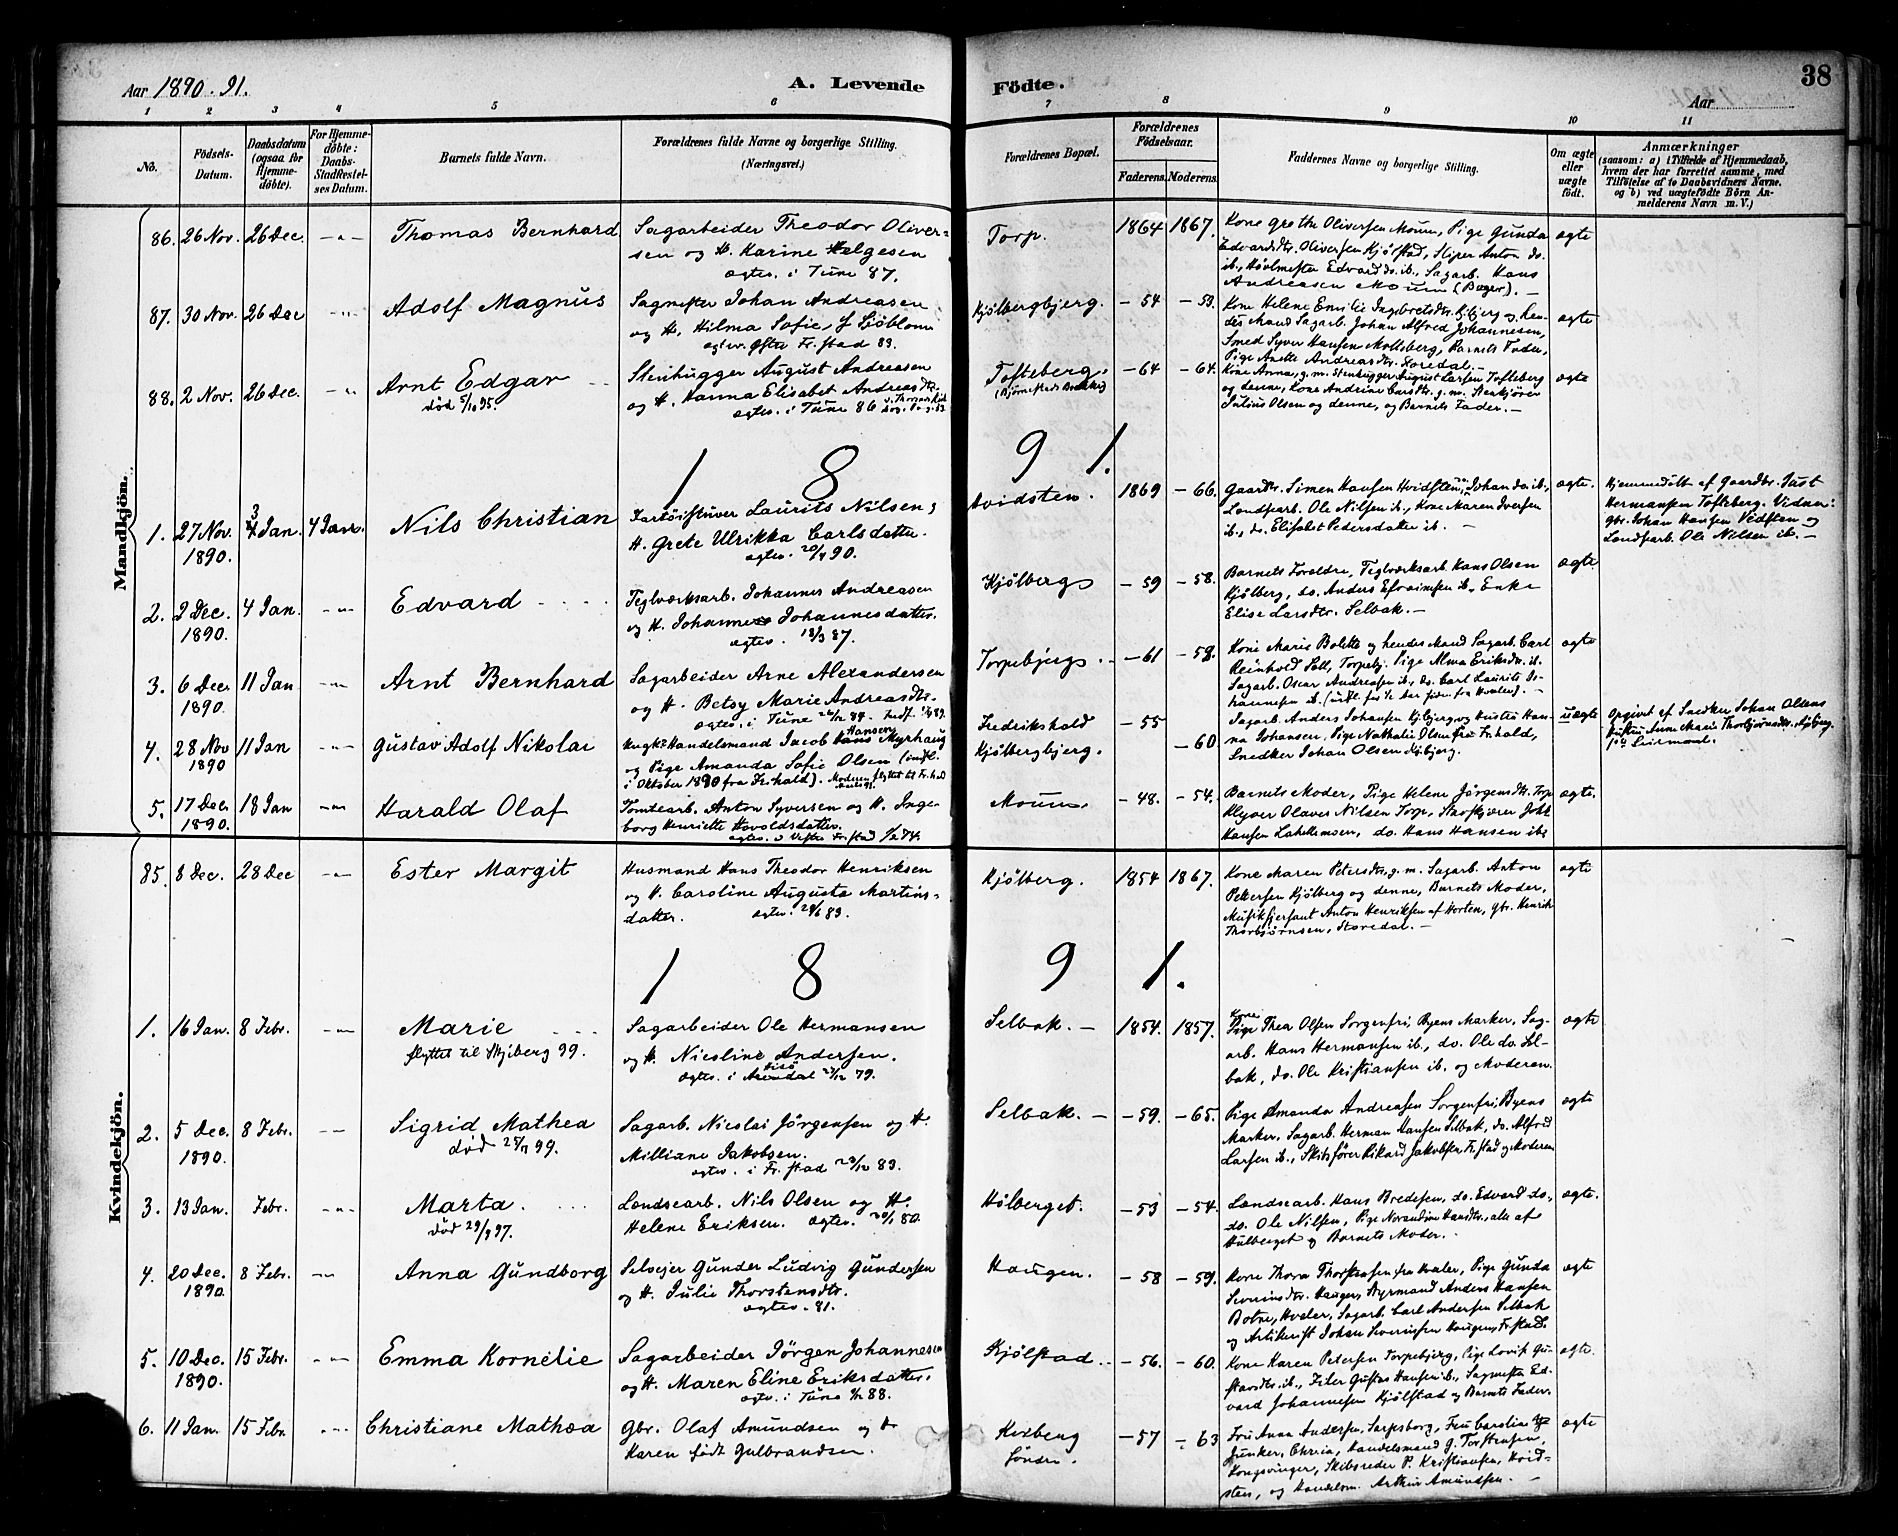 Aar 1890.91.
A. Levende Födte.
38
Aar
1 2 3 4 5 6 7 8 9 10 11
No.
Födsels-Datum.
Daabsdatum (ogsaa for Hjemmedöbte).
For Hjemmedöbte: Daabs-Stadfæstelses Datum.
Barnets fulde Navn.
Forældrenes fulde Navne og borgerlige Stilling. (Næringsvei.)
Forældrenes Bopæl.
Forældrenes Födselsaar.
Faderens. Moderens.
Faddernes Navne og borgerlige Stilling.
Om ægte eller uægte födt.
Anmærkninger
(saasom: a) i Tilfælde af Hjemmedaab, hvem der har forrettet samme, med Tilföielse af to Daabsvidners Navne, og b) ved uægtefödte Börn Anmelderens Navn m. V.)
Mandkjön.
86. 26 Nov. 26 Dec. -"- Thomas Bernhard Sagarbeider Theodor Oliversen og H. Karine Helgesen
ægtev. i Tune 87.
Torp. 1864 1867. Kone Grethe Oliversen Moum, Pige Gunda
Edvardsdtr. Oliversen Kjølstad, Sliper Anton do.
ib., Høvlmester Edvard do. ib., Sagarb. Hans
Andreasen Moum (Bøger). - ægte
87. 30 Nov. 26 Dec -"- Adolf Magnus Sagmester Johan Andreasen
og H. Hilma Sofie f. Sjöblom
ægtev. Østre Fr.stad 83.
Kjølbergbjerg. - 54 - 53. Kone Helene Emilie Ingebretsdtr. Kjbjerg og hendes Mand Sagarb. Johan Alfred Johannesen,
Smed Syver Hansen Mollsberg, Barnets Fader,
Pige Anette Andreasdtr. Storedal. - ægte
88. 2 Nov. 26 Dec. -"- Arnt Edgar
død 5/10 95.
Stenhugger August Andreasen
og H. Hanna Elisabet Andreasdtr.
ægtev. i Tune 86
Tofteberg. - 64 - 64. Kone Anna, g. m. Stenhugger August Larsen Tofteberg
og denne, Kone Andrine Larsdtr. g. m. Stenkjører
Julius Olsen og denne, og Barnets Fader. - ægte
1 8 9 1.
1. 27 Nov. 1890. 3/4 Jan. 4 Janr. Nils Christian Fartøistuver Laurits Nilsen,
H. Grete Ulrikka Carlsdatter.
ægtev. 20/4 90.
Hvidsten. 1869 - 66. Gaardbr. Simen Hansen Hvidsten, Johan do. ib.,
Landsarb. Ole Nilsen ib., Kone Maren Iversen
ib., do. Elisabet Pedersdatter ib. - ægte.
Hjemmedøbt af Gaardbr. Just
Hermansen Tofteberg. Vidner:
gbr. Johan Hansen Vidsten og
Landsarb. Ole Nilsen ib. -
2. 2 Dec. 1890. 4 Jan. -"- Edvard Teglværksarb. Johannes Andreasen
og H. Johanne Johannesdatter.
ægtev. 18/3 87.
Kjølberg - 59 - 58. Barnets Forældre, Teglværksarb Hans Olsen
Kjølberg, do. Anders Efraimsen ib., Enke
Elise Larsdtr. Selbak. - ægte.
3. 6 Dec. 1890. 11 Jan -"- Arnt Bernhard Sagarbeider Arne Alexandersen
og H. Betsy Marie Andreasdtr.
Torpebjerg. - 61 - 58. Kone Marie Bolette og hendes Mand Sagarb. Carl
Reinhold Sell, Torpebj. Pige Alma Eriksdtr. ib.
Sagarb. Oscar Andreasen ib., do. Carl Laurits Johannesen ib. ægte
4. 28 Nov 1890 11 Jan -"- Gustav Adolf Nikolai Handelsmand Jacob Hansen Myrhaug
og Pige Amanda Sofie Olsen (indfl.
i Oktober 1890 fra Fr.hald).
Fredrikshald
Kjølbergbjerg. - 55 - 60. Sagarb. Anders Johansen Kjbjerg og Hustru Hanna Johansen, Pige Nathalie Olsen fra Frhald,
Snedker Johan Olsen Kjbjerg. uægte
Opgivet af Snedker Johan Olsens
Hustru Anne Marie Thorbjørnsdtr. Kjbjerg.
5. 17 Dec. 1890. 18 Jan -"- Harald Olaf Tomtearb. Anton Syversen og H. Ingeborg Henriette Havoldsdatter.
ægtev. i Vestre Fr.stad
Moum. - 48. - 54. Barnets Moder, Pige Helene Jørgensdtr. Torp
Klyver Olaves Nilsen Torp, Hans Hansen ib. ægte.
Kvindekjön.
85. 8 Dec. 28 Dec -"- Ester Margit Husmand Hans Theodor Henriksen
og H. Caroline Augusta Martinsdatter. ægtev. 24/6 83.
Kjølberg. 1854 1867. Kone Maren Petersdtr. g. m. Sagarb. Anton
Pettersen Kjølberg og denne, Barnets Moder,
Musiksersjant Anton Henriksen af Horten, Gbr. Henrik
Thorbjørnsen, Storedal. - ægte
1 8 9 1.
1. 16 Jan. 8 Febr. -"- Marie
flyttet til Skjeberg 99.
Sagarbeider Ole Hermansen
og H. Nicoline Andersen.
Selbak. - 1854. 1857. Pige Thea Olsen Sorgenfri, Byens Marker, Sagarb. Hans Hermansen ib., do. Ole do. Selbak, do. Ole Kristiansen ib. og Moderen. ægte
2. 5 Dec. 1890. 8 Febr. -"- Sigrid Mathea
død 25/11 99.
Sagarb. Nicolai Jørgensen og H.
Milliane Jakobsen.
ægtev. i Fr.stad 29/12 83.
Selbak. - - 59. - 65. Pige Amanda Andreasen Sorgenfri, Byens
Marker, Sagarb. Herman Hansen Selbak, do. Alfred
Larsen ib., Skibsfører Rikard Jakobsen Fr.stad og Moderen ægte
3. 13 Jan. Febr. -"- Marta.
død 29/9 97.
Lændsearb. Nils Olsen og H.
Helene Eriksen. ægtev. 80.
Hølberget. - 53 - 54. Lændsearb. Hans Bredesen, do. Edvard do.,
do. Ole Nilsen, Pige Norandine Hansdtr., alle af
Hulberget og Barnets Moder. - ægte.
4. 20 Dec. 1890. 8 Febr. -"- Anna Gundborg Selveier Gunder Ludvig Gundersen
og H. Julie Thorstensdtr.
ægtev. 81.
Haugen. - 58 - 59. Kone Thora Thorstensen fra Hvaler, Pige Gunda
Severinsdtr. Haugen, Styrmand Anders Hansen
Botne, Hvaler, Sagarb. Carl Andersen Selbak
og Johan Severinsen Haugen, Fr.stad. ægte
5. 10 Dec. 1890. 15 Febr. -"- Emma Kornelie Sagarbeider Jörgen Johannesen
og H. Maren Eline Eriksdatter.
ægtev. i Tune 88.
Kjølstad. - 56. - 60. Kone Karen Petersen Torpebjerg, Pige Lovise Gustavsdtr. ib., Filer Gustav Hansen ib., Sagmester Edvard Johannesen Kjølstad og Barnets Fader. ægte.
6. 11 Jan. 15 Febr. -"- Christiane Mathea Gbr. Olaf Amundsen og H
Karen født Gulbrandsen.
Kirkeng
søndre. - 57 - 63 Fru Anna Andersen, Sarpsborg, Fru Caroline
Junker, Chr.ia, Handelsmand G. Torstensen,
Kongsvinger, Skibsreder P. Kristiansen, Hvidsten, og Handelsm. Arthur Amundsen. - ægte